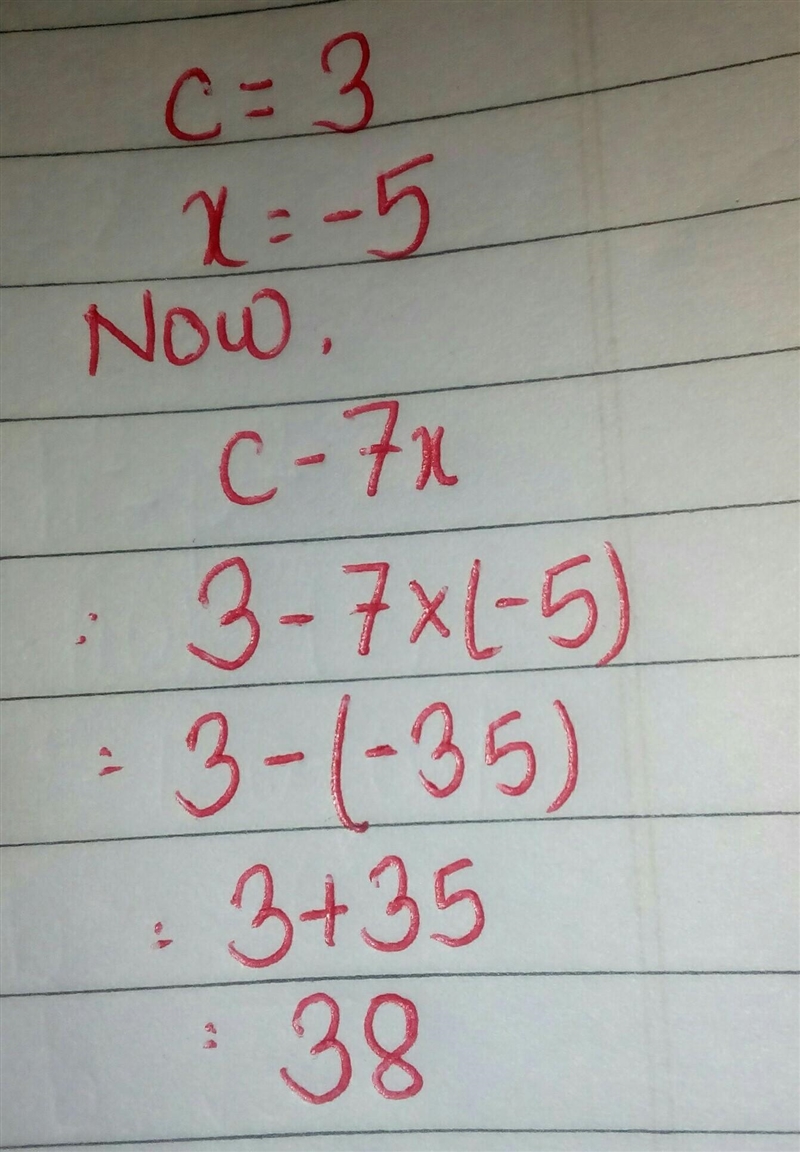 c = 3
x = -5
Now,
c - 7x
= 3 - 7 × (-5)
= 3 - (-35)
= 3 + 35
= 38